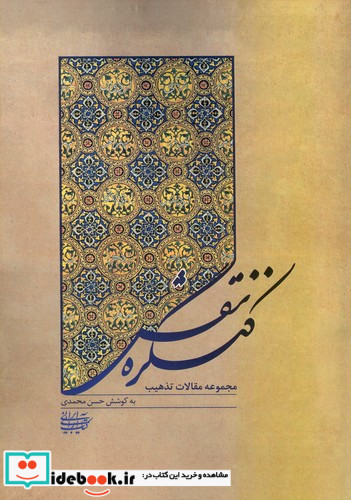 کنگره نقش
مجموعه مقالات تذهیب
به کوشش حسن محمدی
مشاهده و خرید این کتاب در:
idebook.ir